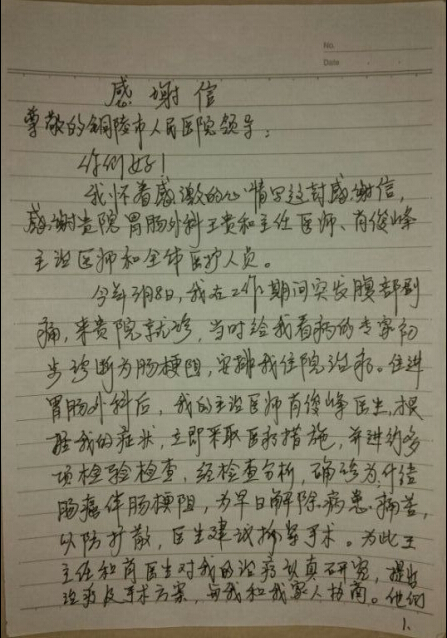 No.
Date
感谢信
尊敬的铜陵市人民医院领导：
你们好！
我怀着感激的心情写这封感谢信，
感谢贵院胃肠外科王贵和主任医师、肖俊峰
主治医师和全体医护人员。
今年3月8日，我在工作期间突发腹部剧
痛，来贵院就诊，当时给我看病的专家初
步诊断为肠梗阻，安排我住院治疗。住进
胃肠外科后，我的主治医师肖俊峰医生，根
据我的症状，立即采取医疗措施，并进行多
项检验检查，经检查分析，确诊为升结
肠癌伴肠梗阻，为早日解除病患痛苦，
以防扩散，医生建议择期手术。为此王
主任和肖医生对我的治疗认真研究，提出
治疗及手术方案，与我和我家人协商。他们
1.